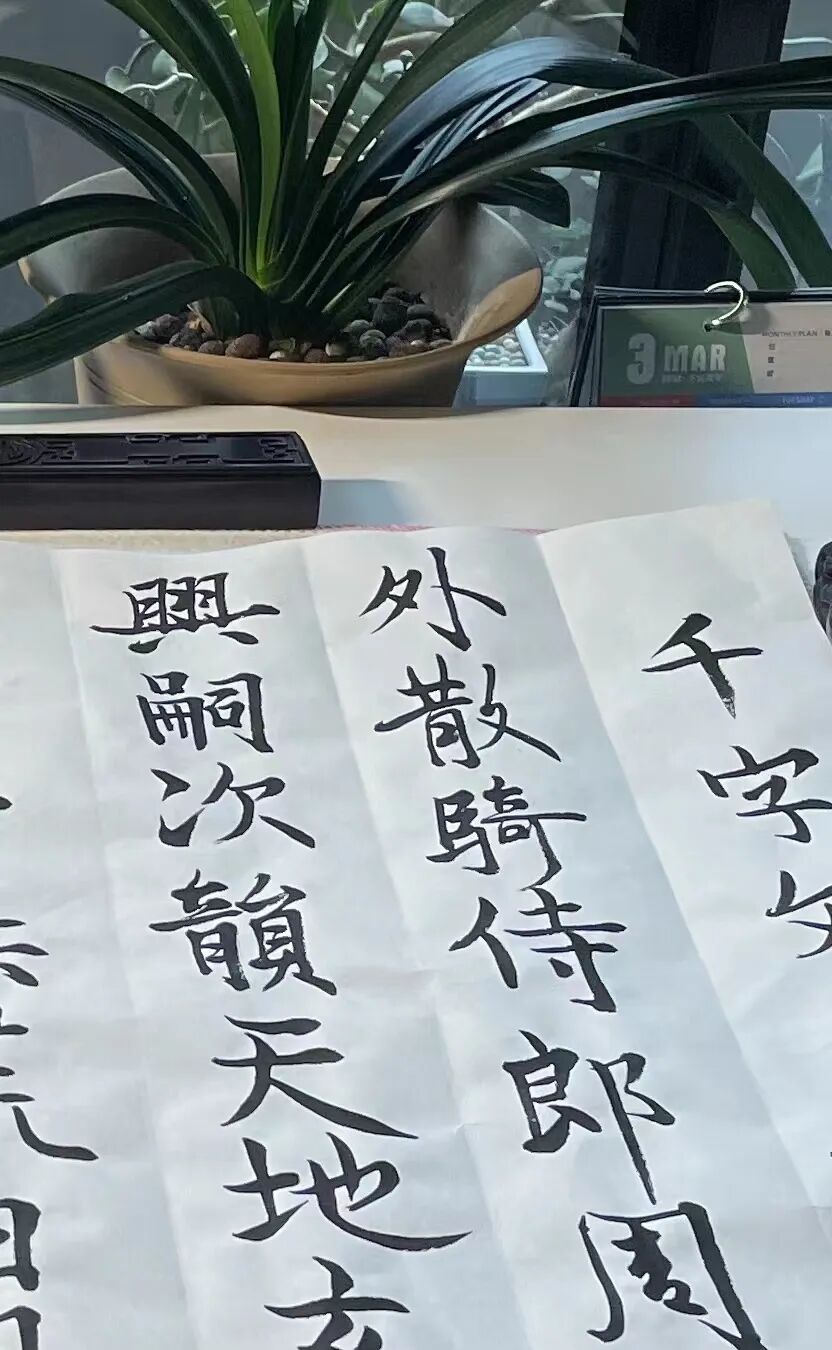 千字文
外散騎侍郎周
興嗣次韻天地玄
3 MAR
MONTHLY PLAN